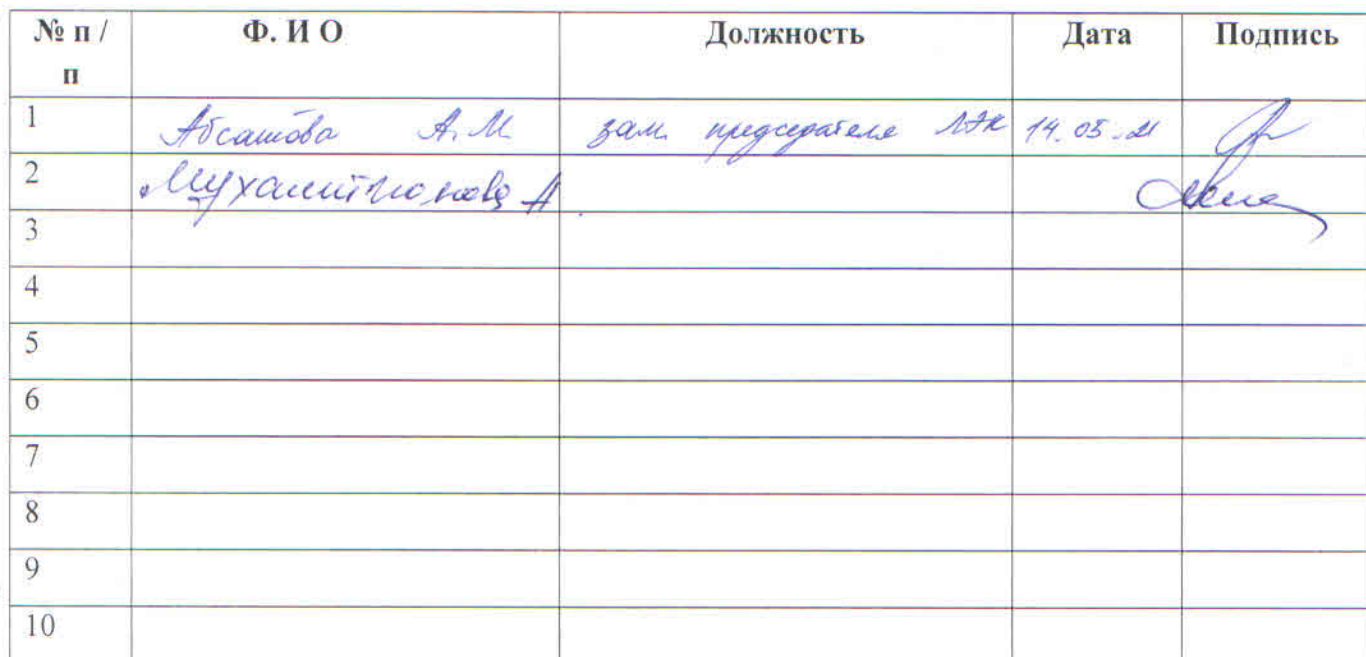 № п / п Ф. И О Должность Дата Подпись
1 Абсатова А. М. зам. председателя ЛЭК 14.05.21
2
3
4
5
6
7
8
9
10